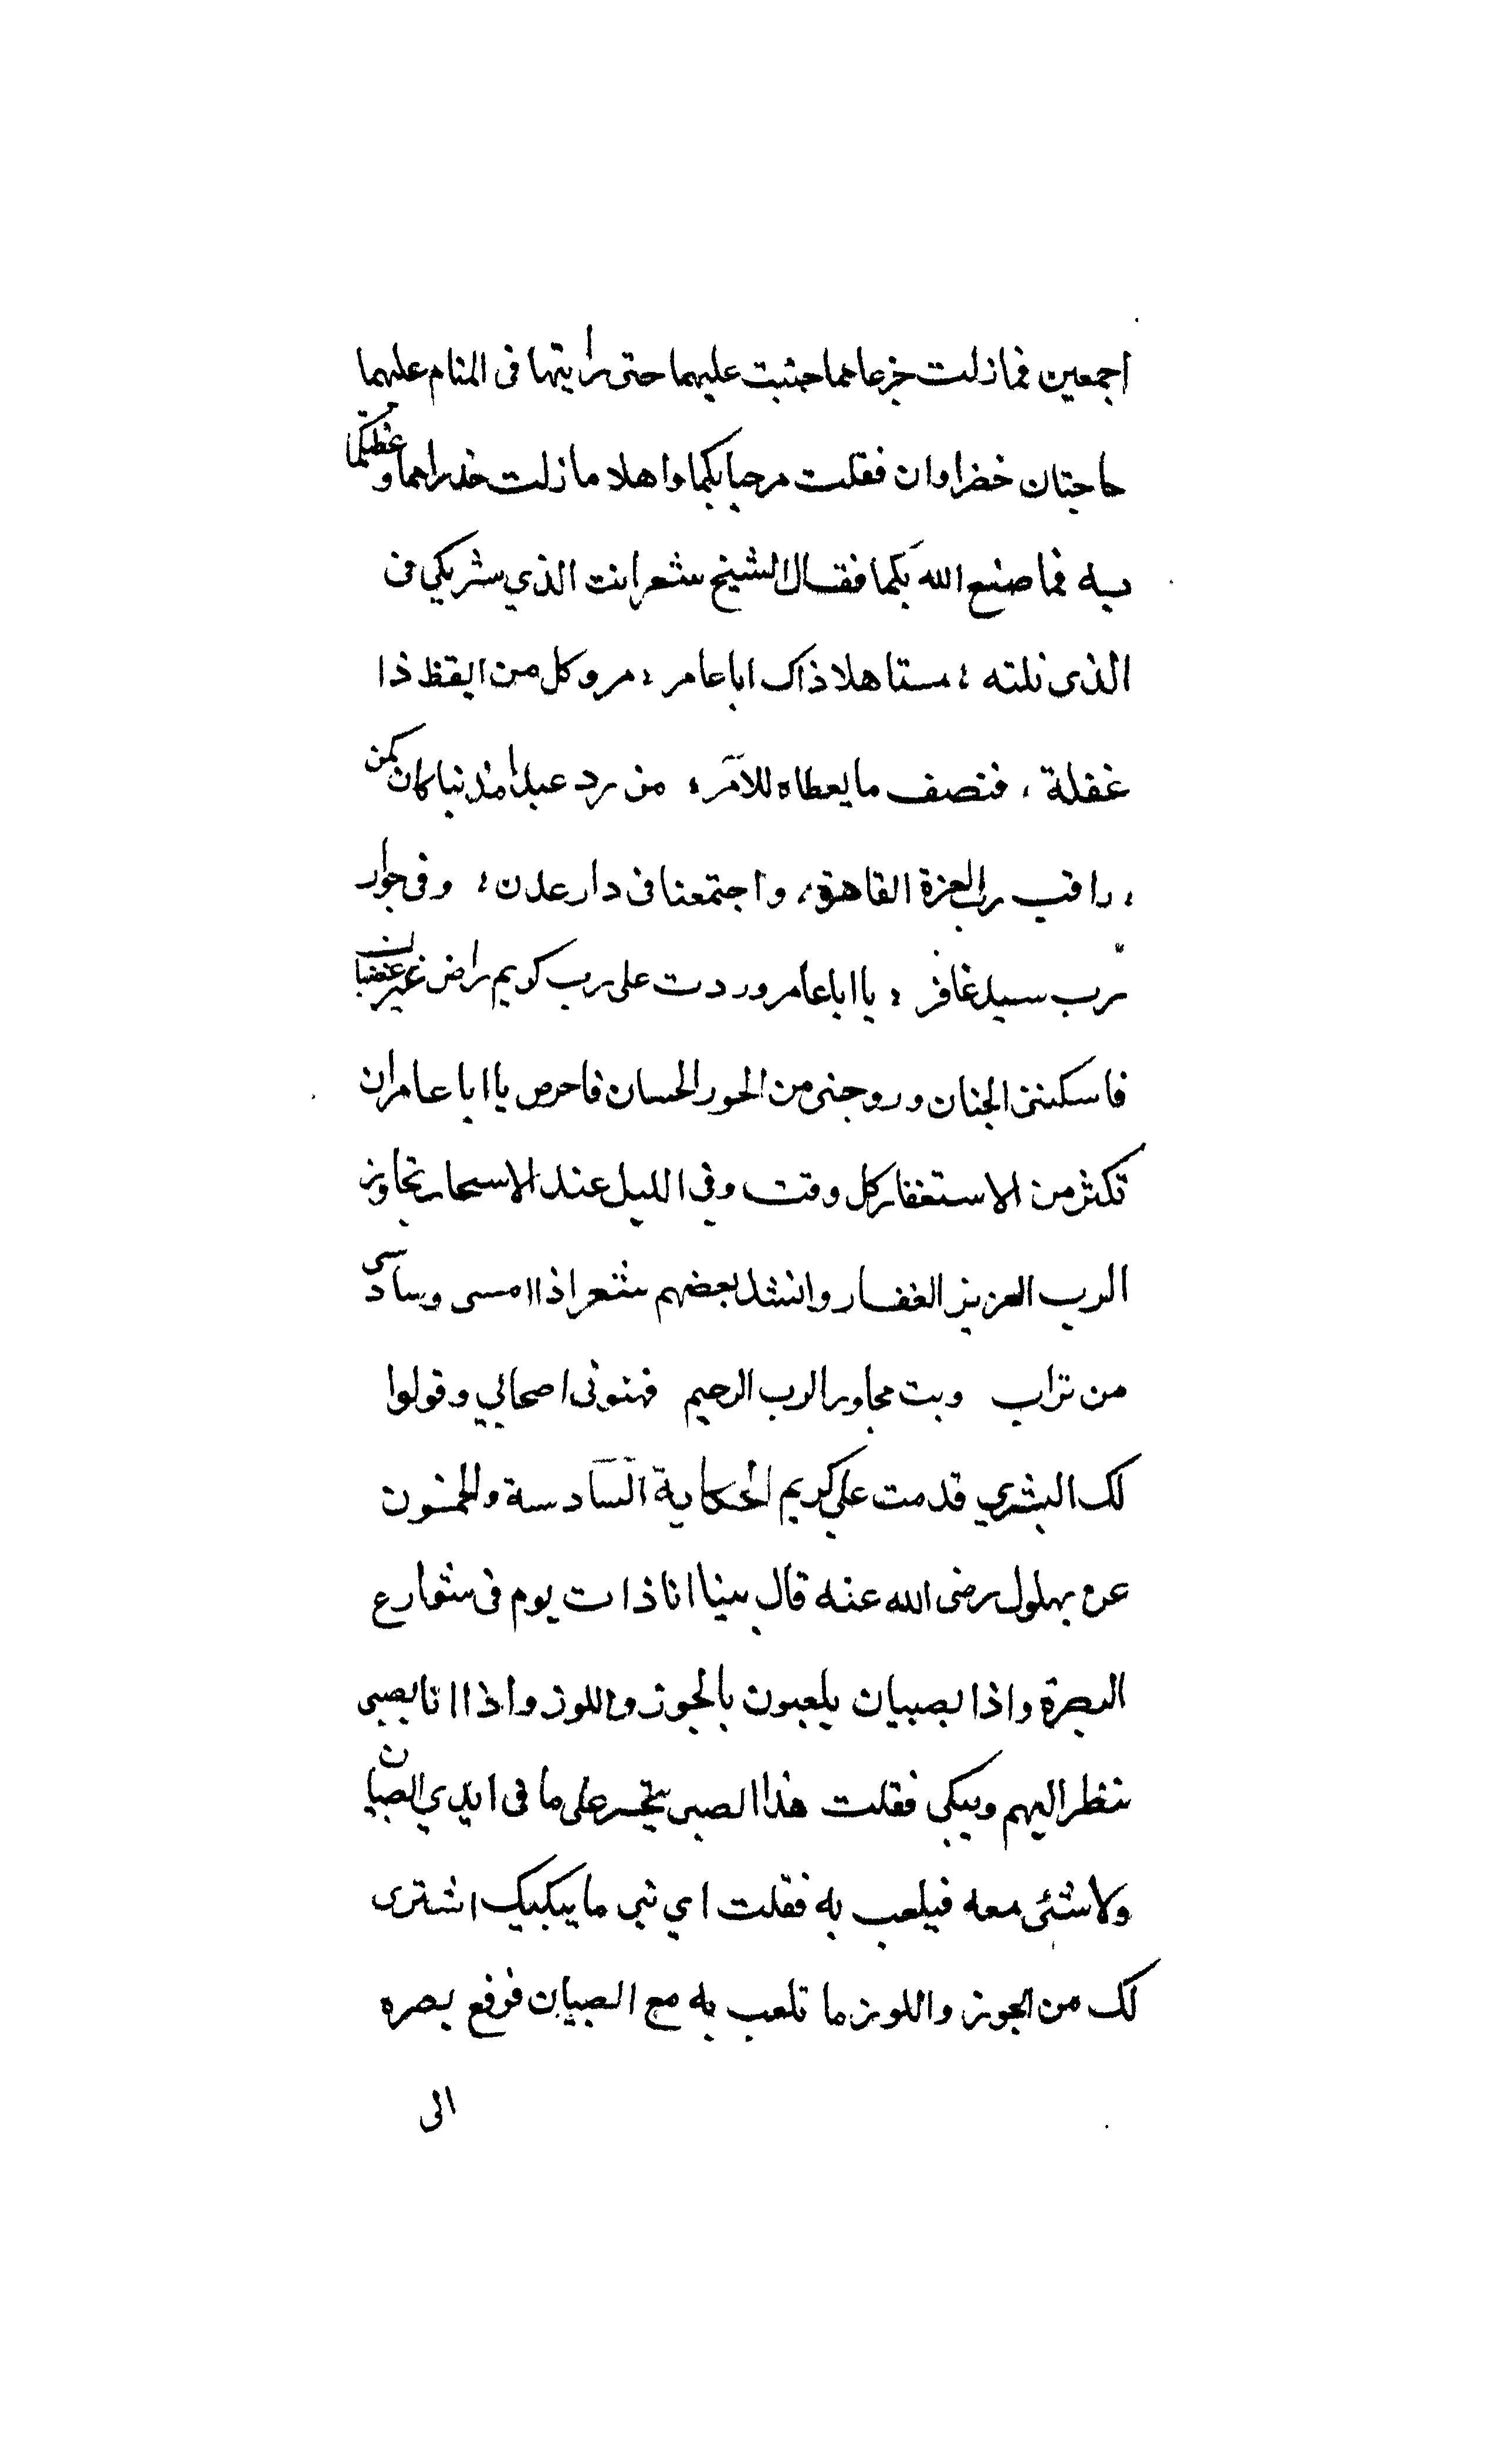 اجمعين فما زلت جزعا مما جنيت عليهما حتى رايتها فى المنام عليهما
حاجتان خضراوان فقلت مرحبا بكما واهلا ما زلت حذراهما وعظتكما
به فما صنع الله بكما فقال الشيخ شعر انت الذي شريكي فى
الذى نلته ؛ مستاهلا ذاك ابا عامر ؛ مر وكل من ايقظ ذا
غفلة ، فنصف ما يعطاه للآمر ؛ من رد عبدا مذنبا كان كمن
، راقب رب العزة القاهرة، واجتمعنا فى دار عدن ؛ وفى جوار
رب سيد غافر ؛ يا ابا عامر وردت على رب كريم راض غير غضبان
فاسكننى الجنان وزوجنى من الحور الحسان فاحرص يا ابا عامر ان
تكثر من الاستغفار كل وقت وفى الليل عند الاسحار تجاوز
الرب العزيز الغفار وانشد بعضهم شعر اذا امسى وسادى
من تراب وبت مجاور الرب الرحيم فهنونى اصحابي وقولوا
لك البشري قدمت علي كريم الحكاية السآدسة والخمسون
عن بهلول رضى الله عنه قال بينا انا ذات يوم فى شوارع
البصرة واذا بصبيان يلعبون بالجوز واللوز واذا انا بصبى
ينظر اليهم ويبكى فقلت هذا الصبى يتحسر على ما فى ايدي الصبيان
ولا شئى معه فيلعب به فقلت اي بني ما يبكيك اشترى
لك من الجوز واللوز ما تلعب به مع الصبيان فرفع بصره
الى